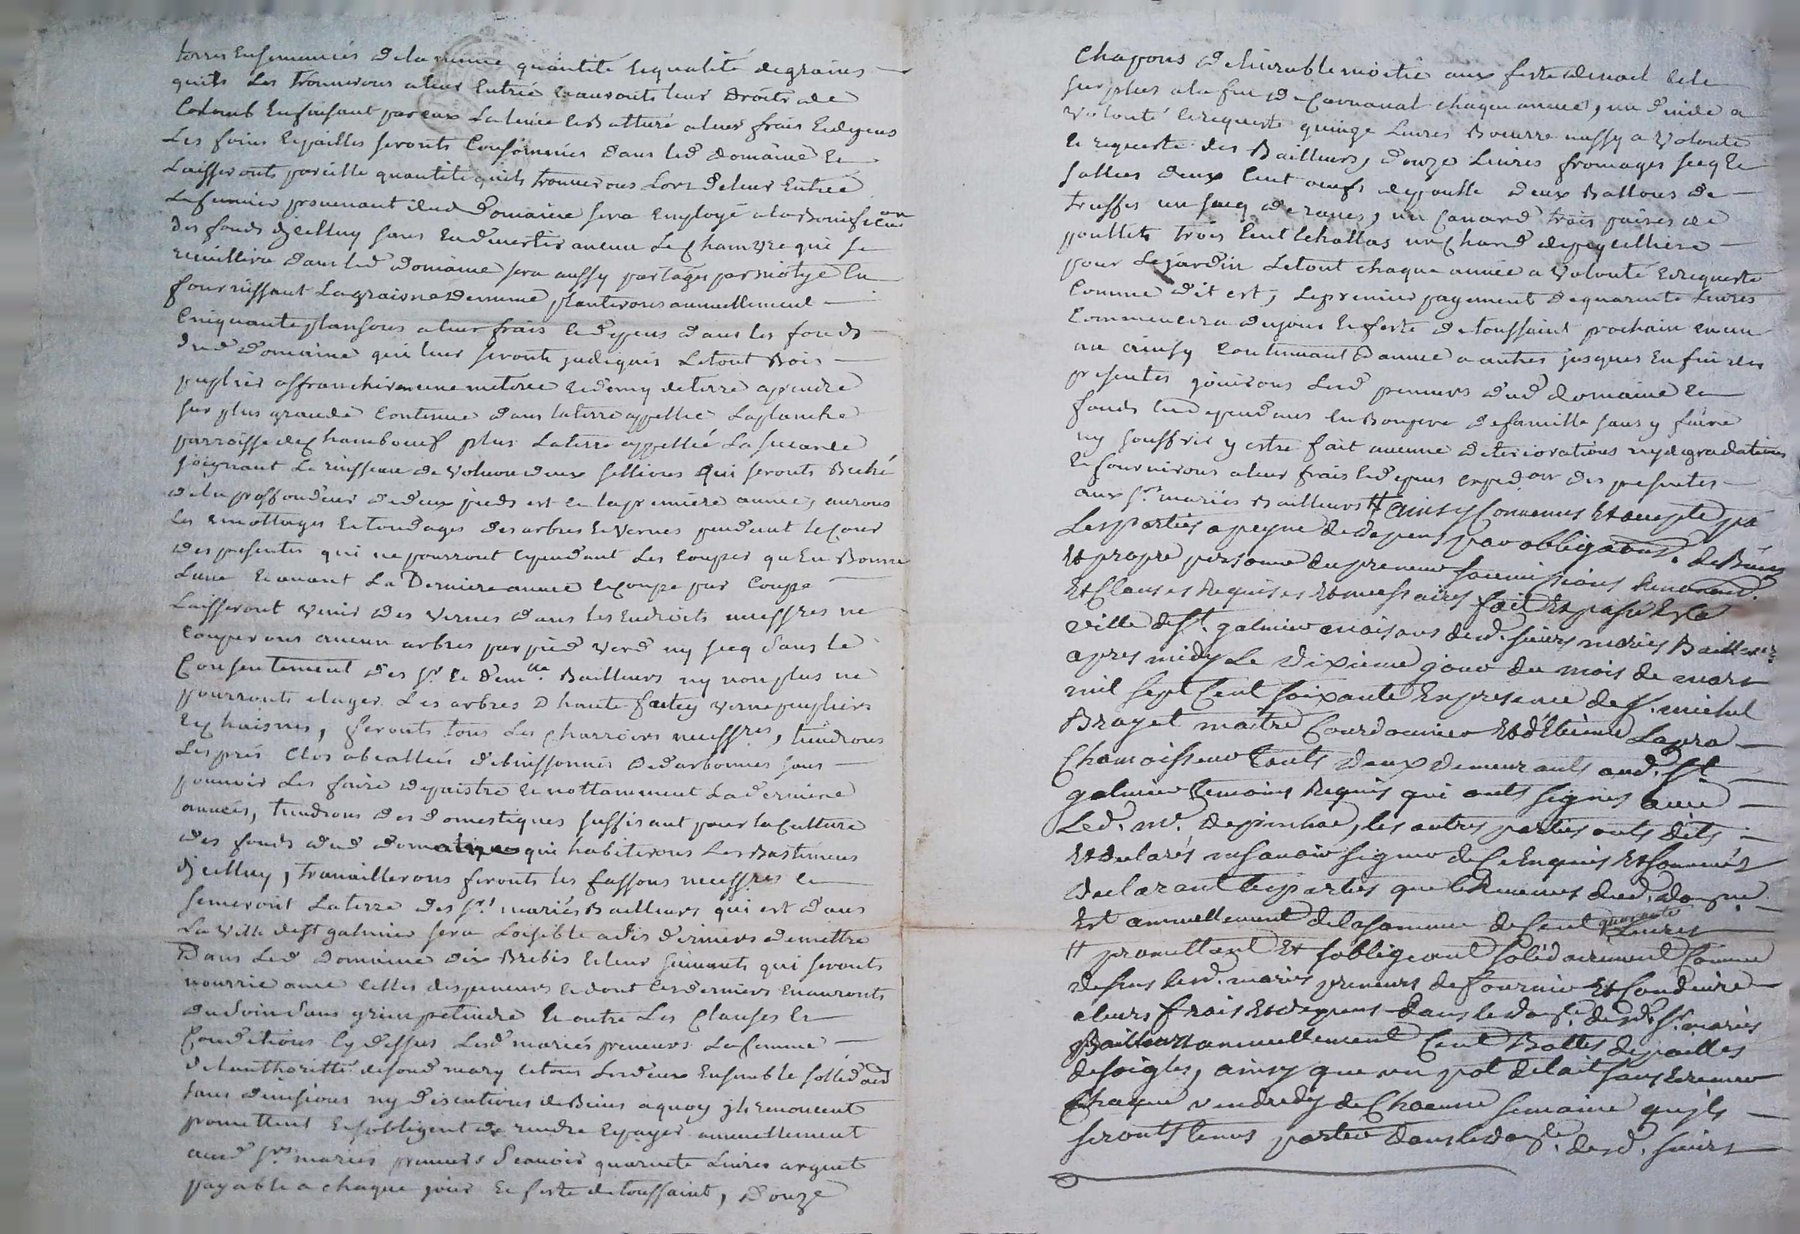 terres Ensemancés de la meme quantité Et qualité de grains
quils Les trouverons a leur Entrée Et aurontz leur Droits de
Colomb En faisant par eux La levée Et Batture a leur frais Et depens
Les foins Et pailles serontz Consommés dans led Domaine Et
Laisseront pareille quantité quils trouverons Lors de leur Entrée
Le fumier provenant dud Domaine sera Employé a la Bonificaon
Des fonds d'jcelluy sans En divertir aucun Le Chamvre qui se
ceuillira dans led Domaine sera aussy partagés par moityé En
fournissant La graisne De meme planterons annuellement
Cinquante plansons a leur frais Et depens dans les fonds
dud Domaine qui leur seronts jndiqués Le tout Bois
puplier affranchir une meterée Et demy de terre a prendre
sur plus grande Contenue dans la terre appellée La planche
parroisse de Chambœuf plus La terre appellée La
joignant Le ruisseau de deux sellions qui seronts Beché
de la proffondeur de deux pieds et Ce la premiere année, aurons
Les Emottages Et tondages des arbres Et Vernes pendant le Cour
Des presentes qui ne pourront Cependant Les Couper qu'En Bonne
Lune Et avant La Derniere année Et Coupe par Coupe
Laisseront Venir des Vernes dans les Endroits necessres ne
Couperons aucun arbres par pied Verd ny secq sans le
Consentement des sr Et dem.lle Bailleurs ny non plus ne
pourronts elager Les arbres D haute futey Verne pupliers
Et Chaisnes, feronts tous Les Charrois necessres, tiendrons
Les prés Clos
pouvoir Les faire depaistre Et nottamment La derniere
années, tiendrons des domestiques suffisant pour la Culture
des fonds dud domaine qui habiterons Les Bastiments
d'jcelluy, travaillerons feronts les fassons necessres Et
semeront La terre des srs mariés Bailleurs qui est dans
La Ville de St galmier sera Loisible Derniers de mettre
Dans Led Domaine dix Brebis Et leur suivants qui seronts
nourrie avec Celles des preneurs Et dont Ces derniers En auronts
Et outre Les Clauses Et
Conditions Cy dessus Lesd mariés preneurs La femme
de Lauthoritté de sond mary Et tous Les deux Ensemble sollidaid
sans Division ny discution de Biens a quoy jls renoncent
promettent Et s'obligent de rendre Et payer annuellement
aud srs mariés preneurs sçavoir quarente Livres argent
payable a chaque jour Et feste de toussaint, douze
Chapons delivrable moitié aux feste de noel Et le
surplus a la fin de Carnaval chaque année, un d'inde a
Volonté Et requeste quinze Livres Beurre aussy a Volonté
Et requeste des Bailleurs, d'ouze Livres fromages secq Et
sallers deux Cent œufs de poulle deux Ballons de
truffes un sacq de raves, un Canard trois paires de
poullets trois Cent Echallas un Chard
pour Le jardin Le tout chaque année a Volonté Et requeste
Comme dit est, Le premier payement de quarente Livres
Commencera du jour Et feste de toussaint prochain En un
an ainsy Continuant d'année a autres jusques En fin des
presentes jouirons Lesd preneurs dud Domaine Et
fonds En dependans En Bon pere de famille sans y faire
ny souffrir y estre fait aucune deteriorations ny degradations
Et fournirons a leur frais Et depens expedon des presentes
aux srs mariés Bailleurs ╫ ainsy Convenus Et accepté par
Les parties a peyne de depens par obligations de Biens
Et propre personne du preneur soumissions Renonaons
Et Clauses Requises Et necessaires fait Et passé En La
ville de St. galmier maisons desd. sieurs mariés Bailleurs
apres midy Le dixieme jour du mois de mars
mil sept Cent soixante En presence de sr. michel
Brayet maitre Courdonnier Et d'Etienne Lapra
Chamoisseur touts deux demeurants aud. St.
galmier temoins Requis qui onts signés avec
Led. mr. Depinhac, les autres parties onts dits
Et declarés ne sçavoir signer de Ce Enquis Et sommés
Declarant les parties que Le Revenus dud. dome
Est annuellement de la somme de Cent quarante Livres
╫ promettent Et s'obligeant solidairement Comme
dessus Lesd. mariés preneurs de fournir Et Conduire
a leurs frais Et depens dans le domle. desd. srs mariés
Bailleurs annuellement Cent Bottes de pailles
de soigles, ainsy que un pot de lait sans Ecremer
Chaque vendredy de Chacune semaine qu'jls
seronts tenus porter dans le domle. desd. sieurs